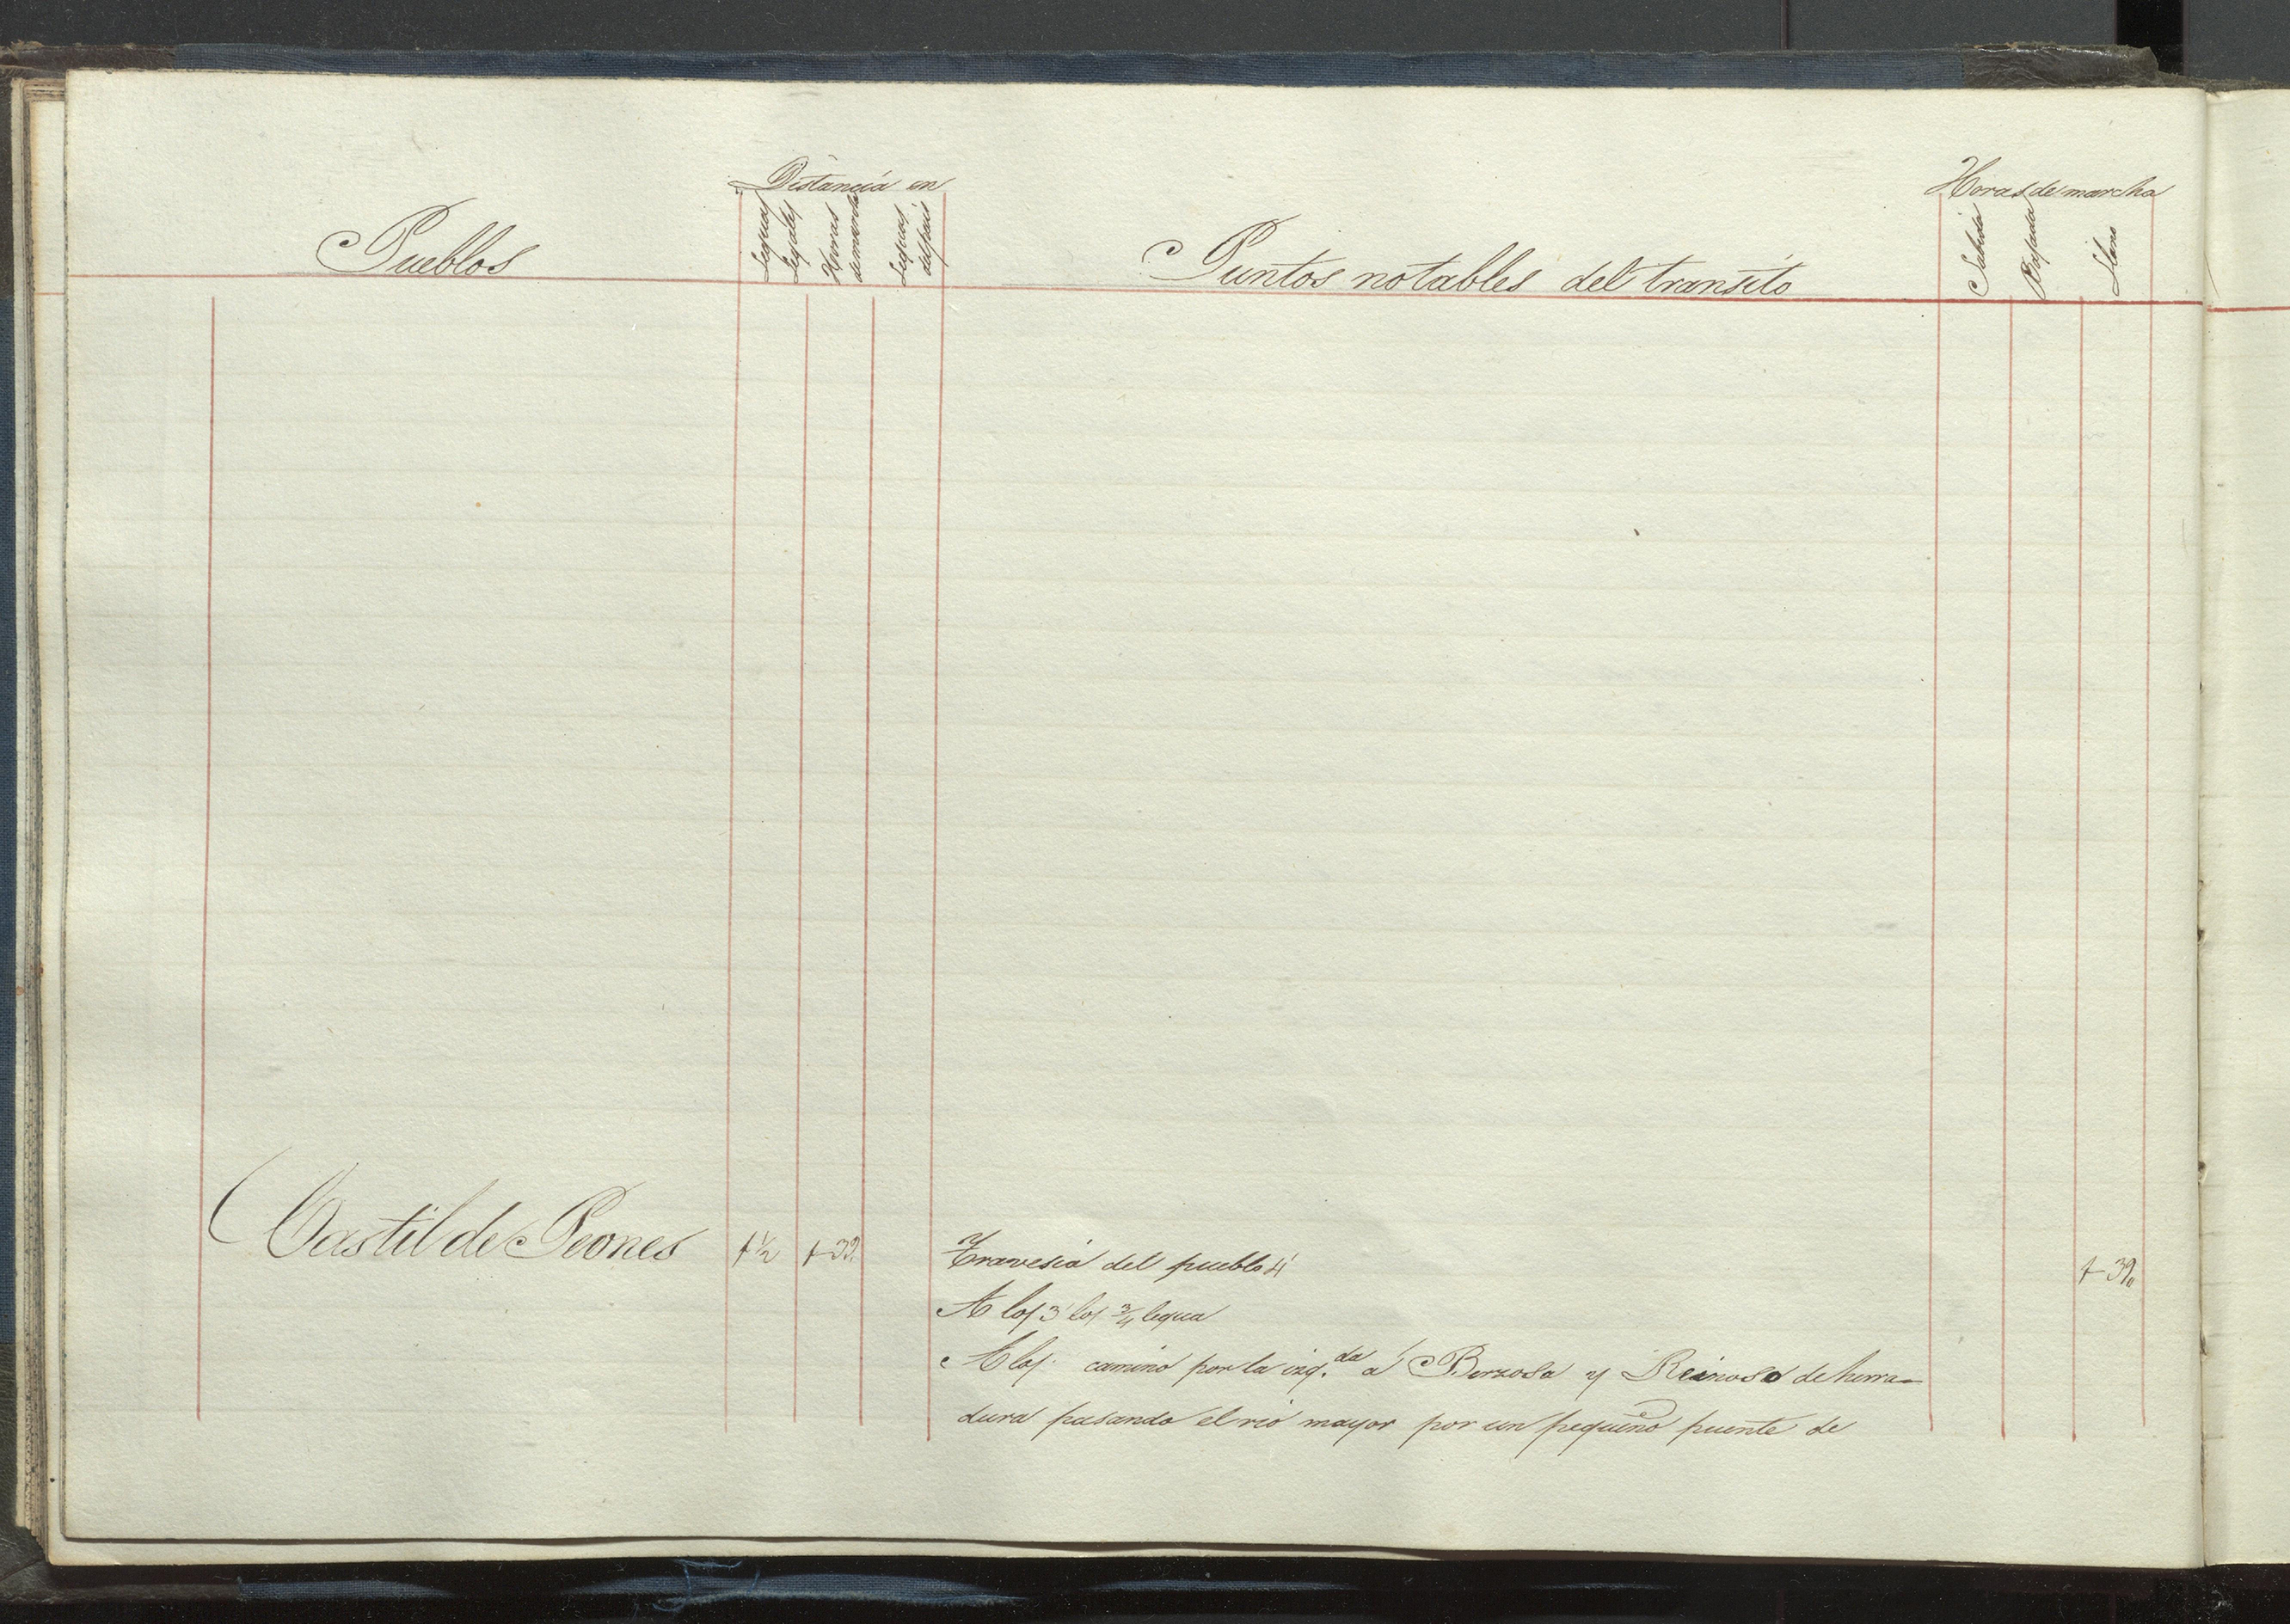 Distancia en
Horas de marcha
Pueblos
Leguas legales
Horas de marcha
Leguas del pais
Puntos notables del transito
Subida
Bajada
Llano
Castil de Peones 1 ½ 1-39. Travesia del pueblo 4' 1-39,,
A los 3' los ¾ legua
A los camino por la izq.da á Berzosa y Reinoso de herra-
dura pasando el rio mayor por un pequeño puente de